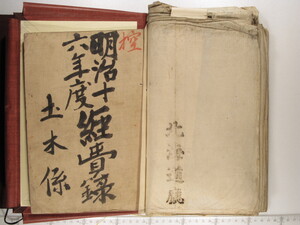 控
明治十
六年度
経費録
土木係
北海道廳